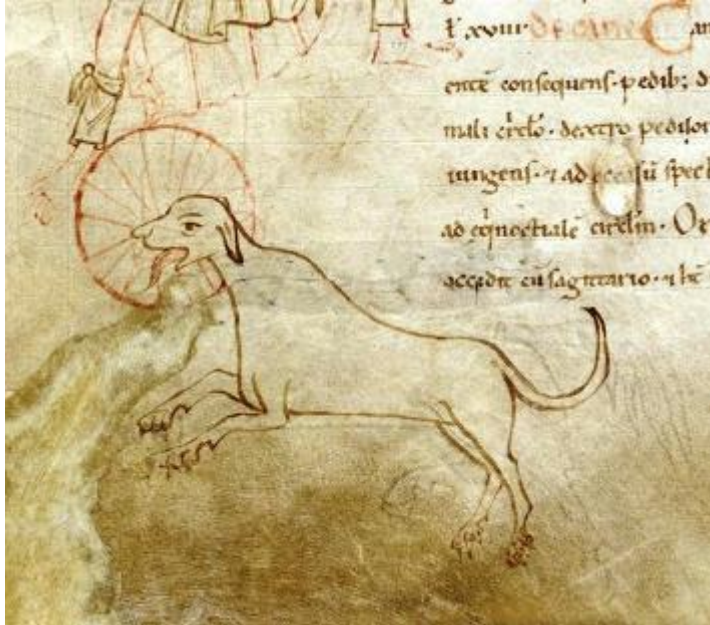 l' xviiii De cane Can
ente consequens. pedib; d
mali circlo. dextro pedi
iungens. & ad occasu spect
ad eqinoctiale circlm. Or
accedit cu sagittario. & h